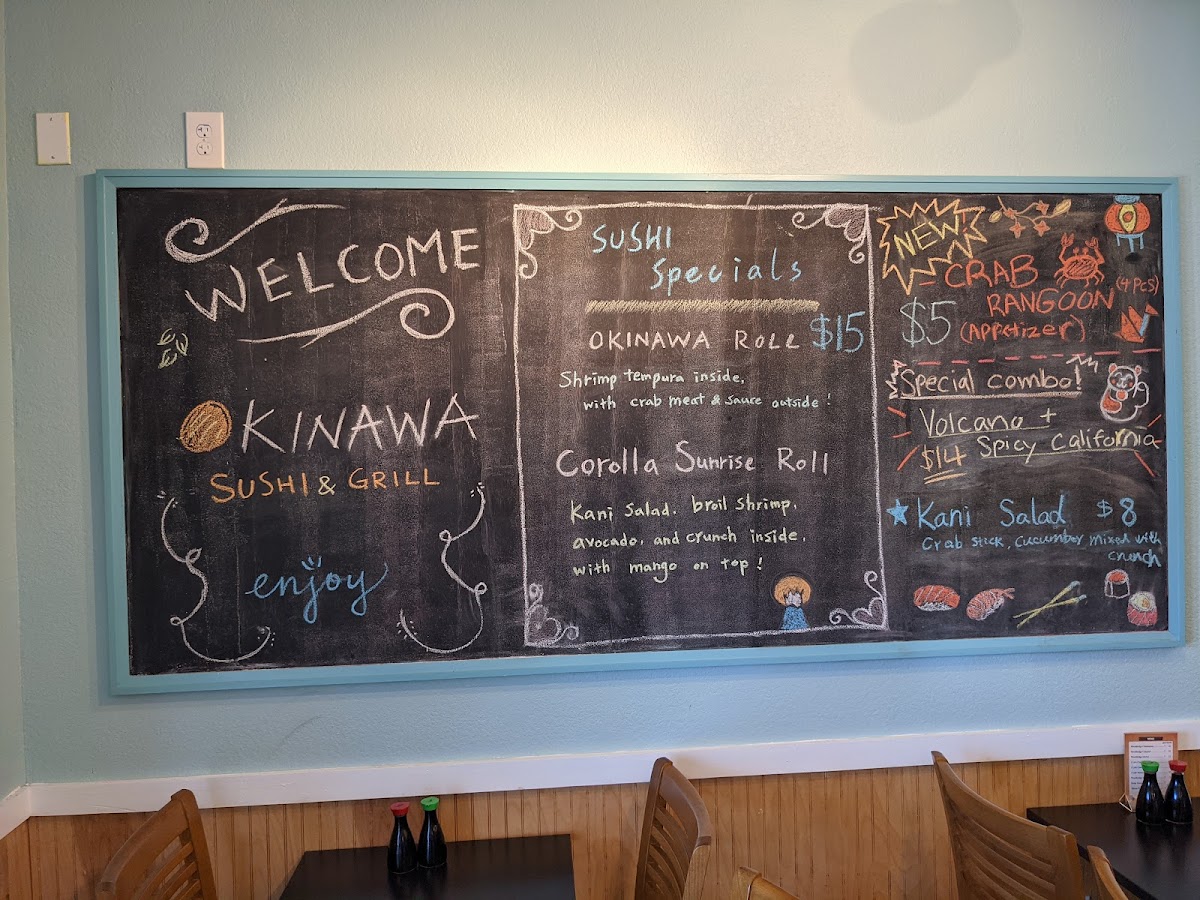 WELCOME
OKINAWA
SUSHI & GRILL
enjoy
SUSHI
Specials
OKINAWA ROLL $15
Shrimp tempura inside,
with crab meat & sauce outside!
Corolla Sunrise Roll
Kani Salad, broil shrimp,
avocado, and crunch inside,
with mango on top!
NEW!
CRAB
RANGOON (4 PCS)
$5 (Appetizer)
Special combo!
Volcano +
$14 Spicy California
Kani Salad $8
Crab stick, cucumber mixed with
crunch